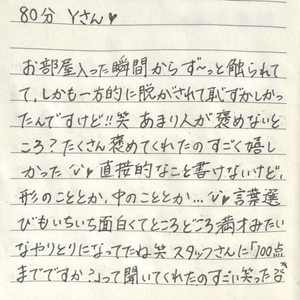 80分 Yさん♥
お部屋入った瞬間からず〜っと触られて
て、しかも一方的に脱がされて恥ずかしかっ
たんですけど!!笑 あまり人が褒めないと
ころ?たくさん褒めてくれたのすごく嬉し
かった♥ 直接的なこと書けないけど、
形のこととか、中のこととか…♥ 言葉選
びもいちいち面白くてところどころ満才みたい
なやりとりになってたね笑 スタッフさんに「100点
までですか?」って聞いてくれたのすごい笑った